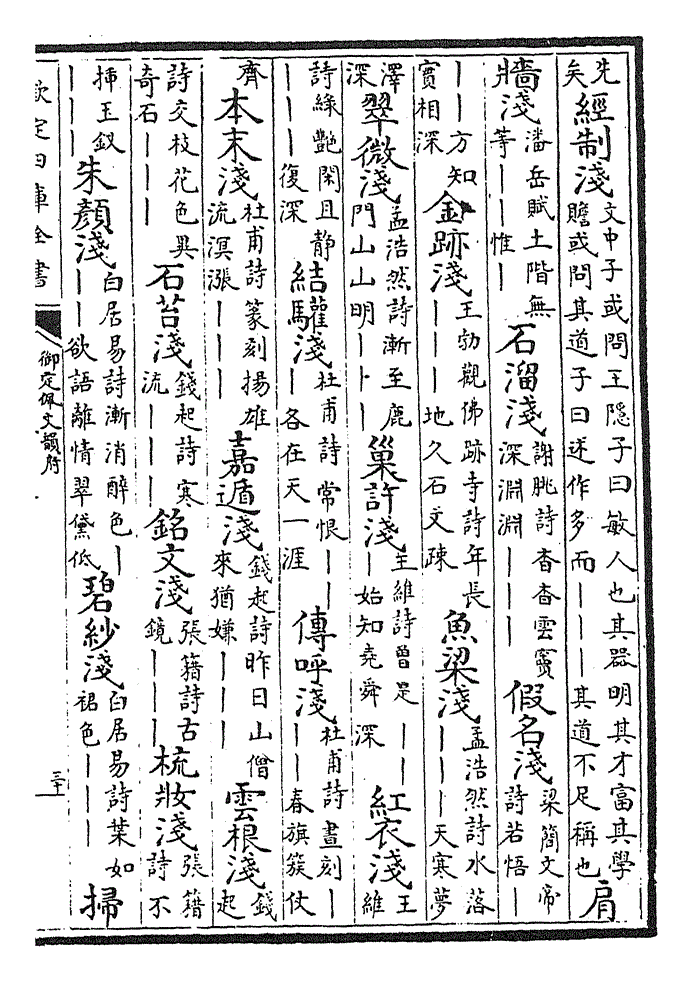 先矣經制淺文中子或問王隱子曰敏人也其器明其才富其學贍或問其道子曰述作多而｜｜｜其道不足稱也肩
牆淺潘岳賦土階無等｜｜惟｜石溜淺謝朓詩杳杳雲竇深淵淵｜｜｜假名淺梁簡文帝詩若悟｜
｜｜方知實相深金跡淺王勃觀佛跡寺詩年長｜｜｜地久石文疎魚梁淺孟浩然詩水落｜｜｜天寒夢
澤深翠微淺孟浩然詩漸至鹿門山山明｜｜｜巢許淺王維詩曾是｜｜｜始知堯舜深紅衣淺王維
詩緣艷閑且靜｜｜｜復深結驩淺杜甫詩常恨｜｜｜各在天一涯傳呼淺杜甫詩晝刻｜｜｜春旗簇仗
齊本末淺杜甫詩篆刻揚雄流溟漲｜｜｜嘉遁淺錢起詩昨日山僧來猶嫌｜｜｜雲根淺錢起
詩交枝花色異奇石｜｜｜石苔淺錢起詩寒流｜｜｜銘文淺張籍詩古鏡｜｜｜梳妝淺張籍詩不
揷玉釵｜｜｜朱顏淺白居易詩漸消醉色｜｜｜欲語離情翠黛低碧紗淺白居易詩葉如裙色｜｜｜掃
欽定四庫全書
御定佩文韻府
三十